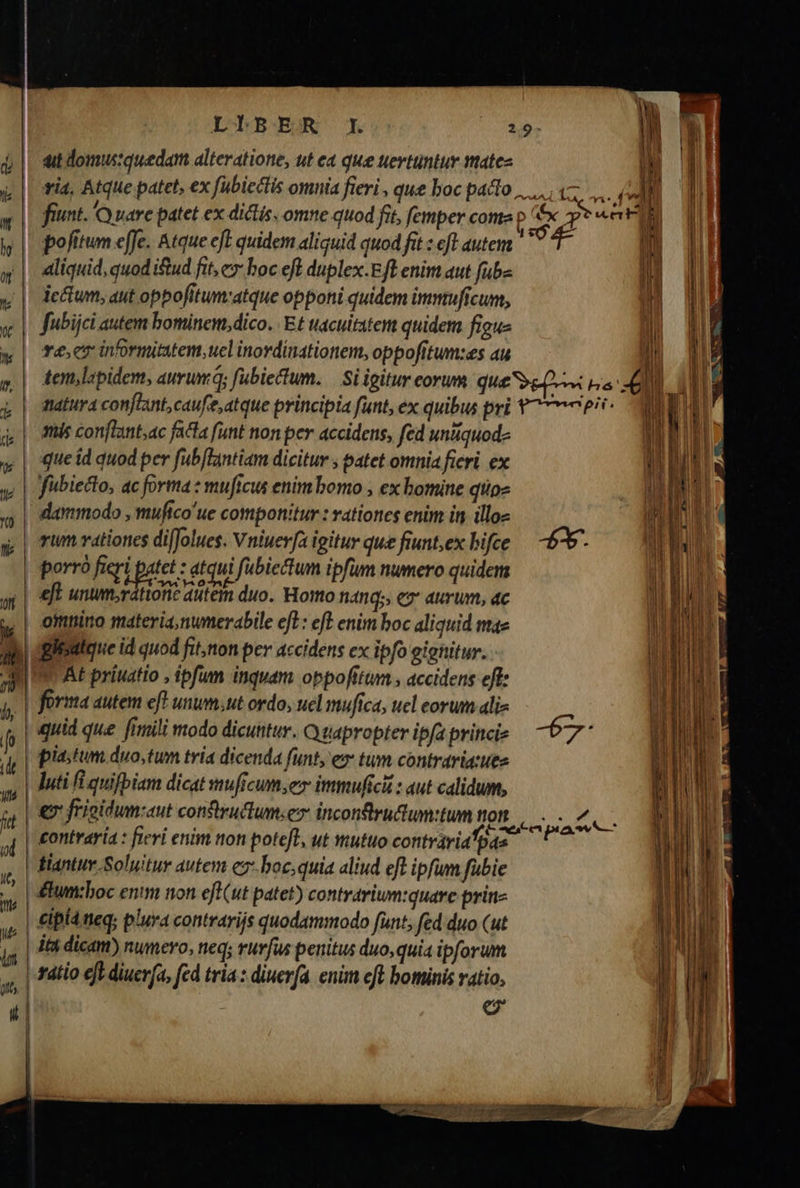 LIBER I. 29.
aut domus: quedam alteratione, ut ea que uertuntur mate⸗
ria. Atque patet, ex ſubiectis omnia fieri, que hoc pacto
fiunt. Quare patet ex dictis, omne quod fit, ſemper com⸗
poſitum eſſe. Atque eſt quidem aliquid quod fit: eſt autem
aliquid, quod iſtud fit, & hoc eſt duplex. Eſt enim aut ſub⸗
iectum, aut oppoſitum: atque opponi quidem immuſicum,
ſubijci autem hominem, dico. Et uacuitatem quidem figu⸗
ræ, & informitatem, uel inordinationem, oppoſitum: æs au
tem, lapidem, aurumq́; ſubiectum. Si igitur eorum quæ
natura conſtant, cauſæ, atque principia ſunt, ex quibus pri
mis conſtant, ac facta ſunt non per accidens, ſed unũquod⸗
que id quod per ſubſtantiam dicitur, patet omnia fieri ex
ſubiecto, ac forma: muſicus enim homo, ex homine quo⸗
dammodo, muſico'ue componitur: rationes enim in illo⸗
rum rationes diſſolues. Vniuerſa igitur quæ fiunt, ex hiſce
porrò fieri patet: atqui ſubiectum ipſum numero quidem
eſt unum, ratione autem duo. Homo nanq;, & aurum, ac
omnino materia, numerabile eſt: eſt enim hoc aliquid ma⸗
gis, atque id quod fit, non per accidens ex ipſo gignitur.
At priuatio, ipſum inquam oppoſitum, accidens eſt:
forma autem eſt unum, ut ordo, uel muſica, uel eorum ali⸗
quid quæ ſimili modo dicuntur. Quapropter ipſa princi⸗
pia, tum duo, tum tria dicenda ſunt, & tum contraria: ue⸗
luti ſi quiſpiam dicat muſicum, & immuſicũ: aut calidum,
& frigidum: aut conſtructum, & inconſtructum: tum non
contraria: fieri enim non poteſt, ut mutuo contraria pa⸗
tiantur. Soluitur autem & hoc, quia aliud eſt ipſum ſubie
ctum: hoc enim non eſt (ut patet) contrarium: quare prin⸗
cipia neq; plura contrarijs quodammodo ſunt, ſed duo (ut
ita dicam) numero, neq; rurſus penitus duo, quia ipſorum
ratio eſt diuerſa, ſed tria: diuerſa enim eſt hominis ratio,
&
66.
67.